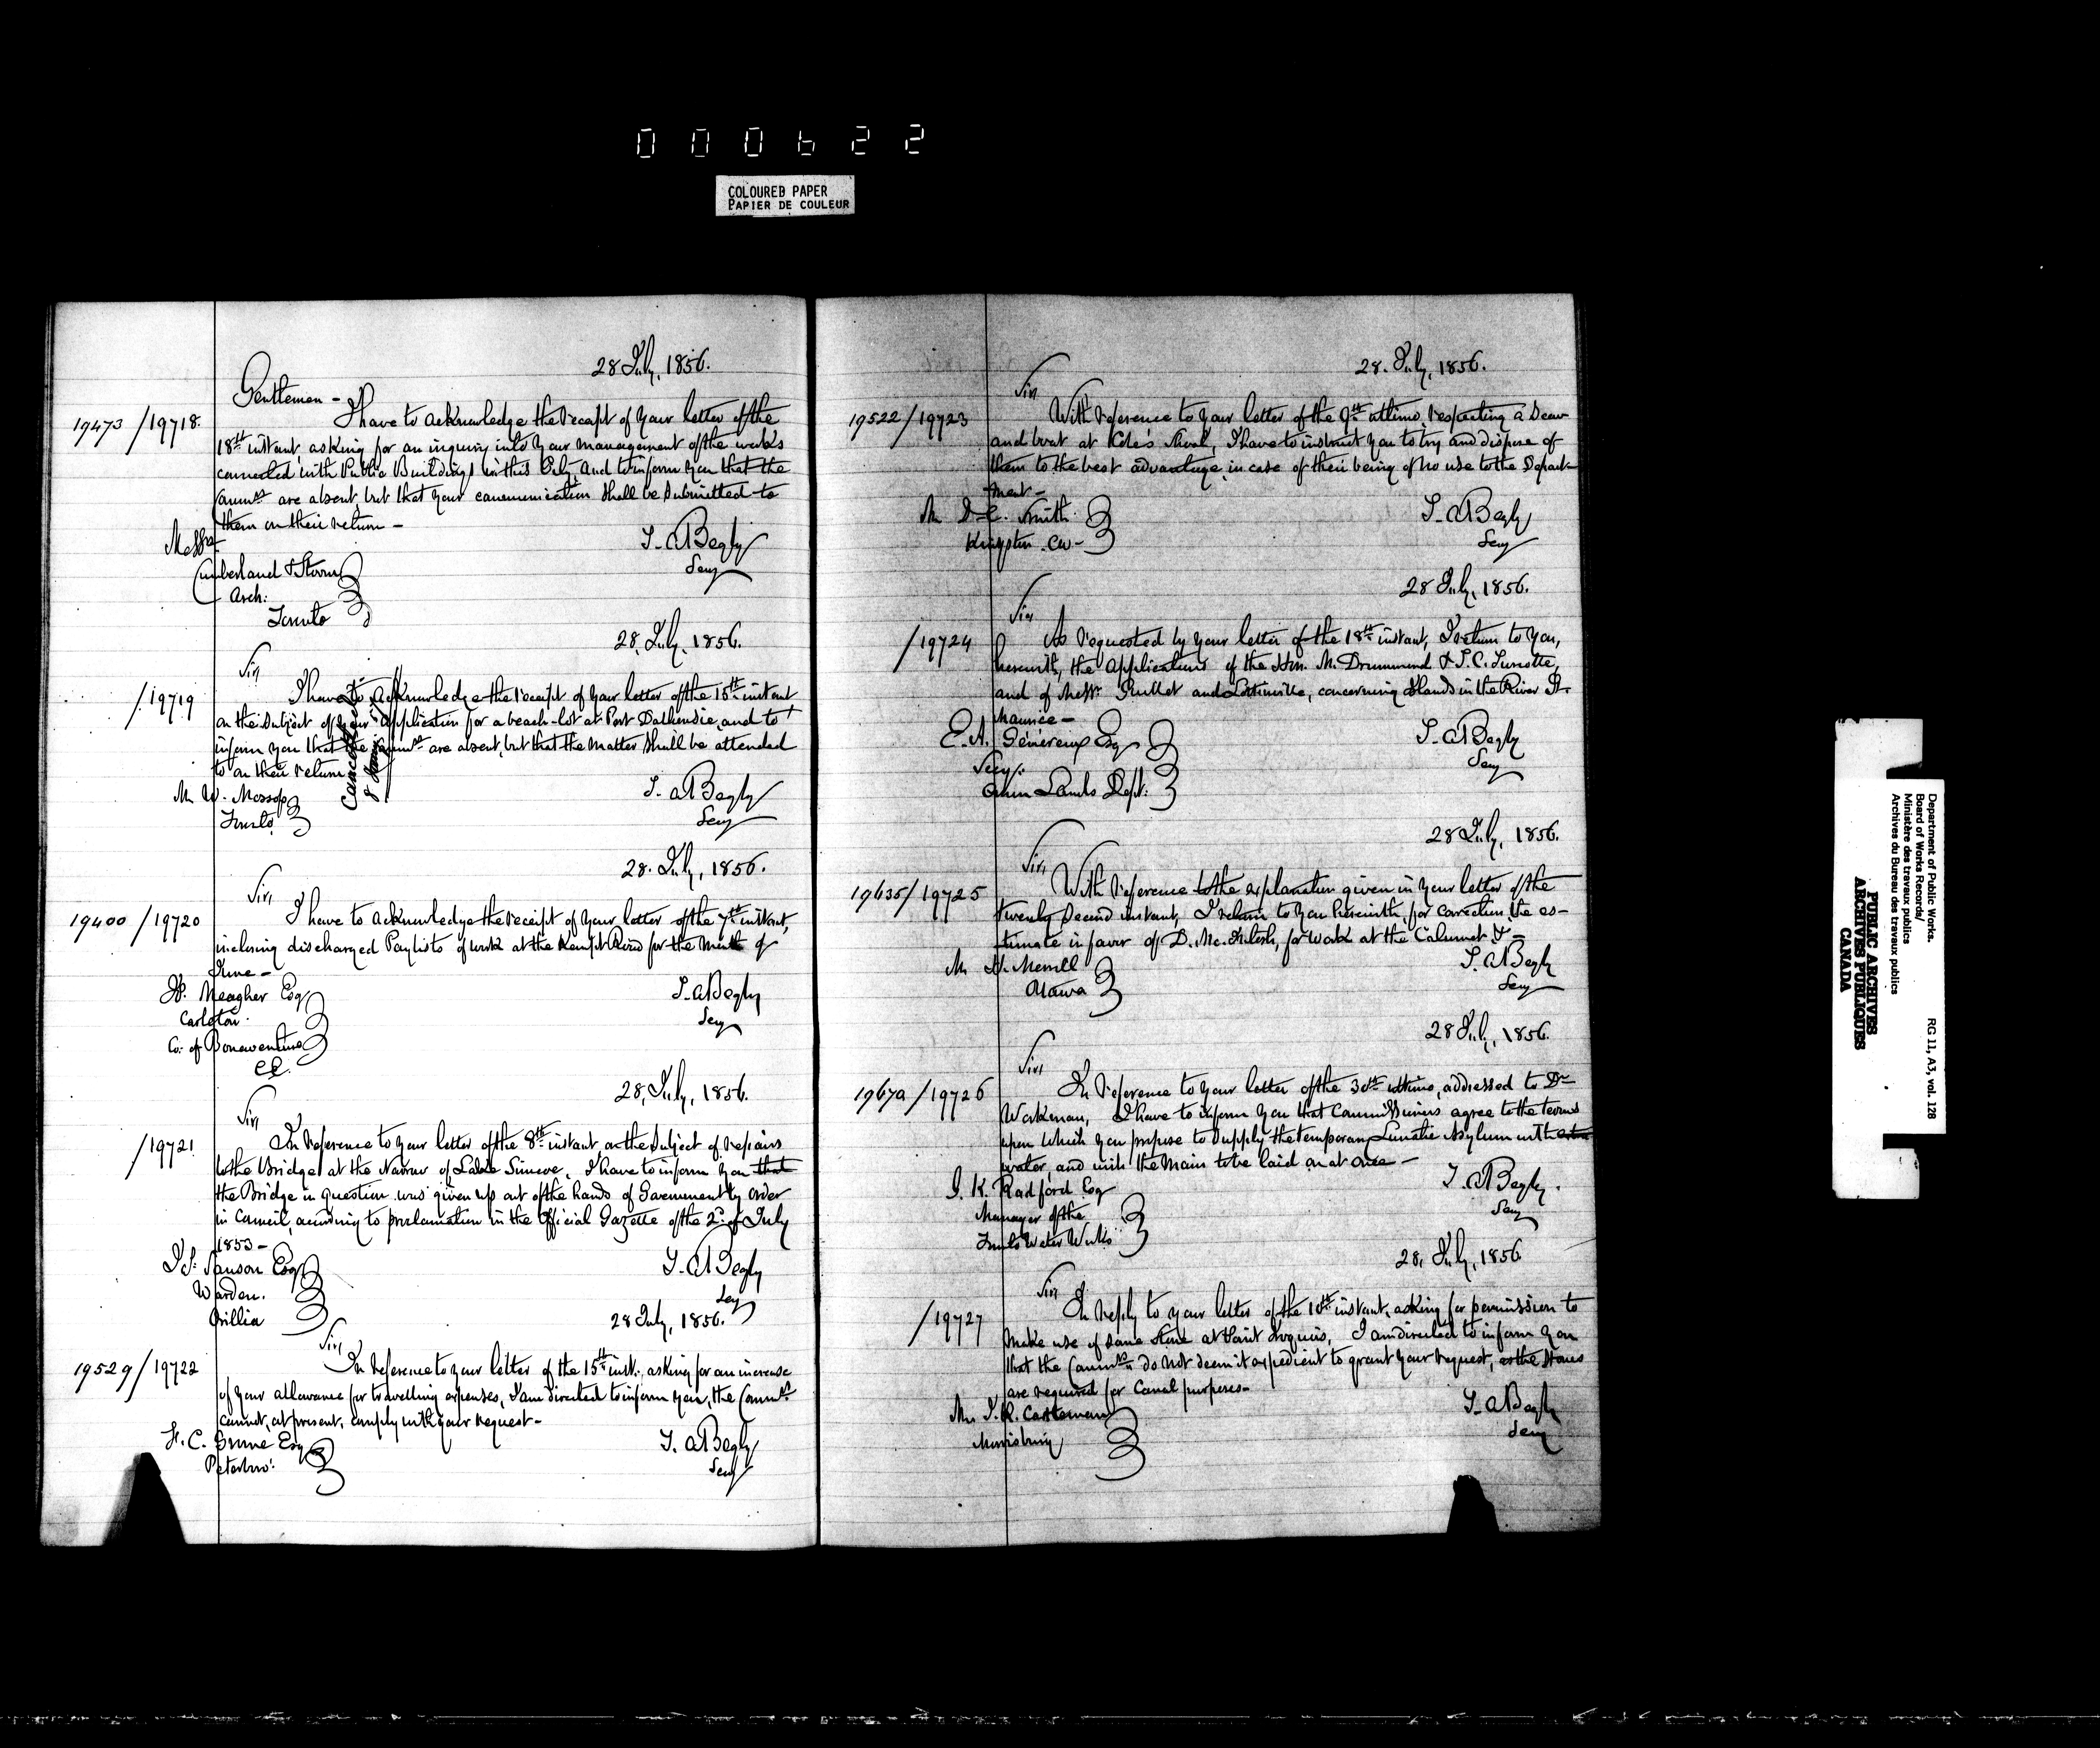 000622
COLOURED PAPER
PAPIER DE COULEUR
28 July, 1856.
Gentlemen -
19473 / 19718.
I have to acknowledge the receipt of your letter of the
18th instant, asking for an inquiry into your management of the works
connected with Public Buildings in this City, and to inform you that the
Commrs are absent, but that your communication shall be submitted to
them on their return -
T. A Begly
Secy
Messrs
Cumberland & Storm
Arch:
Toronto
28, July, 1856.
Sir,
/19719
I have to acknowledge the receipt of your letter of the 15th instant
on the subject of your application for a beach-lot at Port Dalhousie, and to
inform you that the Commrs are absent, but that the matter shall be attended
to on their return
Cancelled
T. A Begly
Secy
Mr W. Mossop
Toronto
28. July, 1856.
Sir,
19400 / 19720
I have to acknowledge the receipt of your letter of the 7th instant,
inclosing discharged Paylists of work at the Kempt Road for the Month of
June -
T. A Begly
Secy
Meagher Esq
Carleton.
Co: of Bonaventure
CE.
28, July, 1856.
Sir,
/19721
In reference to your letter of the 8th instant, on the subject of repairs
to the Bridge at the Narrows of Lake Simcoe, I have to inform you that
the Bridge in question was given up out of the hands of Government by order
in Council, according to proclamation in the Official Gazette of the 2d of July
1853 -
T. A Begly
Secy
J S. Sanson Esq
Warden.
Orillia
28 July, 1856.
Sir,
19529 / 19722
In reference to your letter of the 15th inst., asking for an increase
of your allowance for travelling expenses, I am directed to inform you, the Commrs
cannot, at present, comply with your request -
T. A Begly
Secy
Esq
Peterboro'.
28. July, 1856.
Sir,
19522 / 19723
With reference to your letter of the 9th ultimo, respecting a Scow
and boat at Cole's Shoal, I have to instruct you to try and dispose of
them to the best advantage, in case of their being of no use to the Depart-
ment -
T. A Begly
Secy
Mr D. C. Smith
Kingston. CW -
28 July, 1856.
Sir
/19724
As requested by your letter of the 18th instant, I return to you,
herewith, the applications of the Hon. M. Drummond & J. C. Turcotte,
and of Messrs Guillet and Lottinville, concerning Islands in the River St.
Maurice -
T. A Begly
Secy
E. A. Généreux Esq
Secy:
Crown Lands Dept:
28 July, 1856.
Sir,
19635 / 19725
With reference to the explanation given in your letter of the
twenty second instant, I return to you herewith, for correction, the es-
timate in favor of D. McIntosh, for work at the Calumet &c -
T. A Begly
Secy
Mr H. Merrill
Ottawa
28 July, 1856.
Sir,
19672 / 19726
In reference to your letter of the 30th ultimo, addressed to Dr
Workman, I have to inform you that Commissioners agree to the terms
upon which you propose to supply the temporary Lunatic Asylum with
water, and wish the Main to be laid on at once -
T. A Begly.
Secy
J. K. Radford Esq
Manager of the
Toronto Water Works
28, July, 1856
Sir,
/19727
In reply to your letter of the 10th instant, asking for permission to
make use of some stone at Point Iroquois, I am directed to inform you
that the Commrs do not deem it expedient to grant your request, as the Stones
are required for Canal purposes -
T. A Begly
Secy
Mr J. R. Casteman
Morrisburg
Department of Public Works.
Board of Works Records/
Ministère des travaux publics
Archives du Bureau des travaux publics
RG 11, A3, vol. 128
PUBLIC ARCHIVES
ARCHIVES PUBLIQUES
CANADA